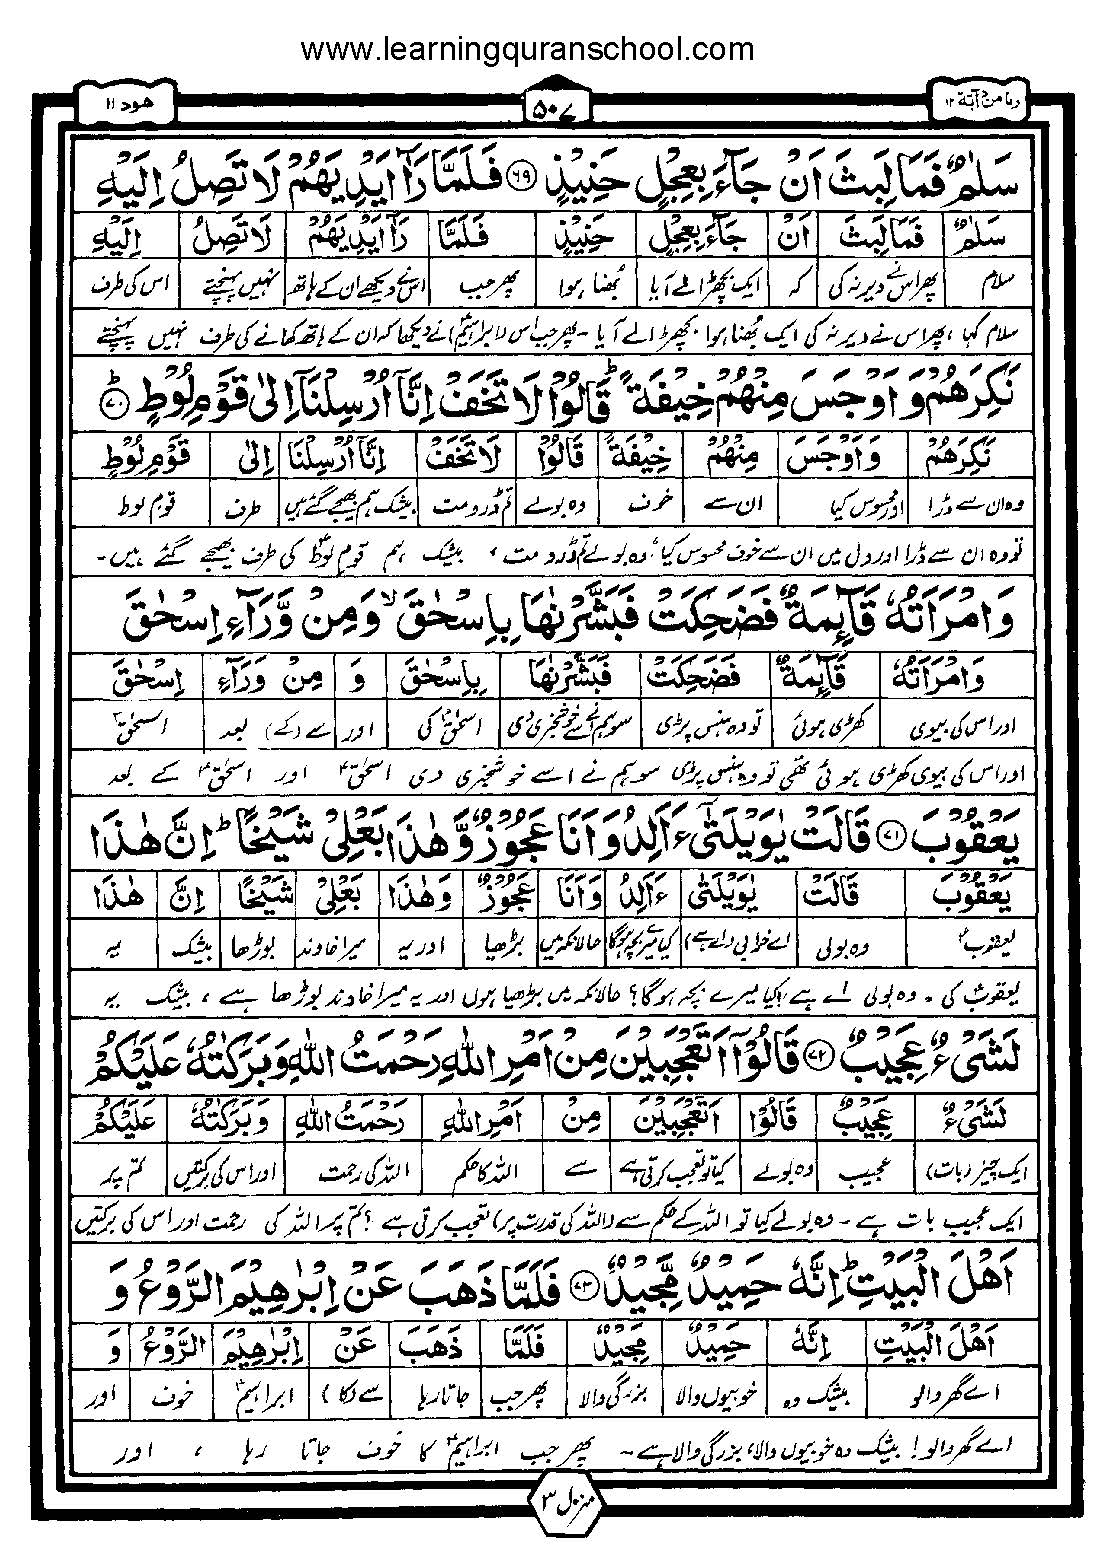 www.learningquranschool.com
هود ۱۱
۵۰۷
ومامن دآبة ۱۲
سَلٰمٌ فَمَا لَبِثَ اَنْ جَآءَ بِعِجْلٍ حَنِيْذٍ ۶۹ فَلَمَّا رَآٰ اَيْدِيَهُمْ لَا تَصِلُ اِلَيْهِ
سَلٰمٌ فَمَا لَبِثَ اَنْ جَآءَ بِعِجْلٍ حَنِيْذٍ فَلَمَّا رَآٰ اَيْدِيَهُمْ لَا تَصِلُ اِلَيْهِ
سلام پھر اس نے دیر نہ کی کہ ایک بچھڑا لے آیا بُھنا ہوا پھر جب اس نے دیکھے ان کے ہاتھ نہیں پہنچتے اس کی طرف
سلام کہا، پھر اس نے دیر نہ کی ایک بُھنا ہوا بچھڑا لے آیا ۔ پھر جب اس (ابراہیمؑ) نے دیکھا کہ ان کے ہاتھ کھانے کی طرف نہیں پہنچتے
نَكِرَهُمْ وَ اَوْجَسَ مِنْهُمْ خِيْفَةً ؕ قَالُوْا لَا تَخَفْ اِنَّآ اُرْسِلْنَآ اِلٰى قَوْمِ لُوْطٍ ؕ ۷۰
نَكِرَهُمْ وَ اَوْجَسَ مِنْهُمْ خِيْفَةً قَالُوْا لَا تَخَفْ اِنَّآ اُرْسِلْنَا اِلٰى قَوْمِ لُوْطٍ
وہ ان سے ڈرا اور محسوس کیا ان سے خوف وہ بولے تم ڈرو مت بیشک ہم بھیجے گئے ہیں طرف قوم لوط
تو وہ ان سے ڈرا اور دل میں ان سے خوف محسوس کیا، وہ بولے تم ڈرو مت ، بیشک ہم قوم لوطؑ کی طرف بھیجے گئے ہیں۔
وَ امْرَاَتُهٗ قَآئِمَةٌ فَضَحِكَتْ فَبَشَّرْنٰهَا بِاِسْحٰقَ ۙ وَ مِنْ وَّرَآءِ اِسْحٰقَ
وَ امْرَاَتُهٗ قَآئِمَةٌ فَضَحِكَتْ فَبَشَّرْنٰهَا بِاِسْحٰقَ وَ مِنْ وَرَآءِ اِسْحٰقَ
اور اس کی بیوی کھڑی ہوئی تو وہ ہنس پڑی سو ہم نے اسے خوشخبری دی اسحٰقؑ کی اور سے (کے) بعد اسحٰقؑ
اور اس کی بیوی کھڑی ہوئی تھی تو وہ ہنس پڑی سو ہم نے اسے خوشخبری دی اسحٰقؑ اور اسحٰقؑ کے بعد
يَعْقُوْبَ ۷۱ قَالَتْ يٰوَيْلَتٰٓى ءَاَلِدُ وَ اَنَا عَجُوْزٌ وَّ هٰذَا بَعْلِىْ شَيْخًا ؕ اِنَّ هٰذَا
يَعْقُوْبَ قَالَتْ يٰوَيْلَتٰى ءَاَلِدُ وَ اَنَا عَجُوْزٌ وَ هٰذَا بَعْلِىْ شَيْخًا اِنَّ هٰذَا
یعقوبؑ وہ بولی اے خرابی (اے ہے) کیا میرے بچہ ہوگا حالانکہ میں بڑھیا اور یہ میرا خاوند بوڑھا بیشک یہ
یعقوبؑ کی ۔ وہ بولی اے ہے! کیا میرے بچہ ہوگا؟ حالانکہ میں بڑھیا ہوں اور یہ میرا خاوند بوڑھا ہے ، بیشک یہ
لَشَىْءٌ عَجِيْبٌ ۷۲ قَالُوْٓا اَتَعْجَبِيْنَ مِنْ اَمْرِ اللّٰهِ رَحْمَتُ اللّٰهِ وَ بَرَكٰتُهٗ عَلَيْكُمْ
لَشَىْءٌ عَجِيْبٌ قَالُوْٓا اَتَعْجَبِيْنَ مِنْ اَمْرِ اللّٰهِ رَحْمَتُ اللّٰهِ وَ بَرَكٰتُهٗ عَلَيْكُمْ
ایک چیز (بات) عجیب وہ بولے کیا تو تعجب کرتی ہے سے اللہ کا حکم اللہ کی رحمت اور اس کی برکتیں تم پر
ایک عجیب بات ہے ۔ وہ بولے کیا تو اللہ کے حکم سے (اللہ کی قدرت پر) تعجب کرتی ہے ؟ تم پر اللہ کی رحمت اور اس کی برکتیں
اَهْلَ الْبَيْتِ ؕ اِنَّهٗ حَمِيْدٌ مَّجِيْدٌ ۷۳ فَلَمَّا ذَهَبَ عَنْ اِبْرٰهِيْمَ الرَّوْعُ وَ
اَهْلَ الْبَيْتِ اِنَّهٗ حَمِيْدٌ مَّجِيْدٌ فَلَمَّا ذَهَبَ عَنْ اِبْرٰهِيْمَ الرَّوْعُ وَ
اے گھر والو بیشک وہ خوبیوں والا بزرگی والا پھر جب جاتا رہا سے (کا) ابراہیمؑ خوف اور
اے گھر والو! بیشک وہ خوبیوں والا، بزرگی والا ہے ۔ پھر جب ابراہیمؑ کا خوف جاتا رہا ، اور
منزل ۳